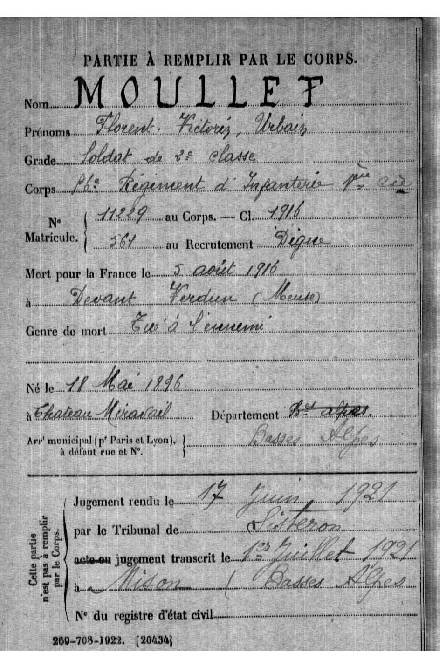 PARTIE À REMPLIR PAR LE CORPS.
Nom MOULLET
Prénoms Florent, Victorin, Urbain
Grade Soldat de 2e classe
Corps 86e Régiment d'Infanterie
N° Matricule. 11229 au Corps. — Cl. 1916
561 au Recrutement Digne
Mort pour la France le 5 août 1916
à Devant Verdun (Meuse)
Genre de mort Tué à l'ennemi
Né le 18 Mai 1896
à Chateau Département Bses Alpes
Arrt municipal (pr Paris et Lyon), à défaut rue et N°. Basses Alpes
Cette partie n'est pas à remplir par le Corps.
Jugement rendu le 17 Juin 1921
par le Tribunal de Sisteron
acte ou jugement transcrit le 1er Juillet 1921
à Mison (Basses Alpes
N° du registre d'état civil
269-708-1922. [26434]